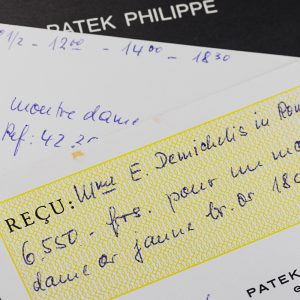 PATEK PHILIPPE
1/2 - 12⁰⁰ - 14⁰⁰ - 18³⁰
montre dame
Réf: 42.25
REÇU: Mme E. Demichelis in Rom
6.550.- frs. pour une mo
dame or jaune br. or 18
PATEK
G